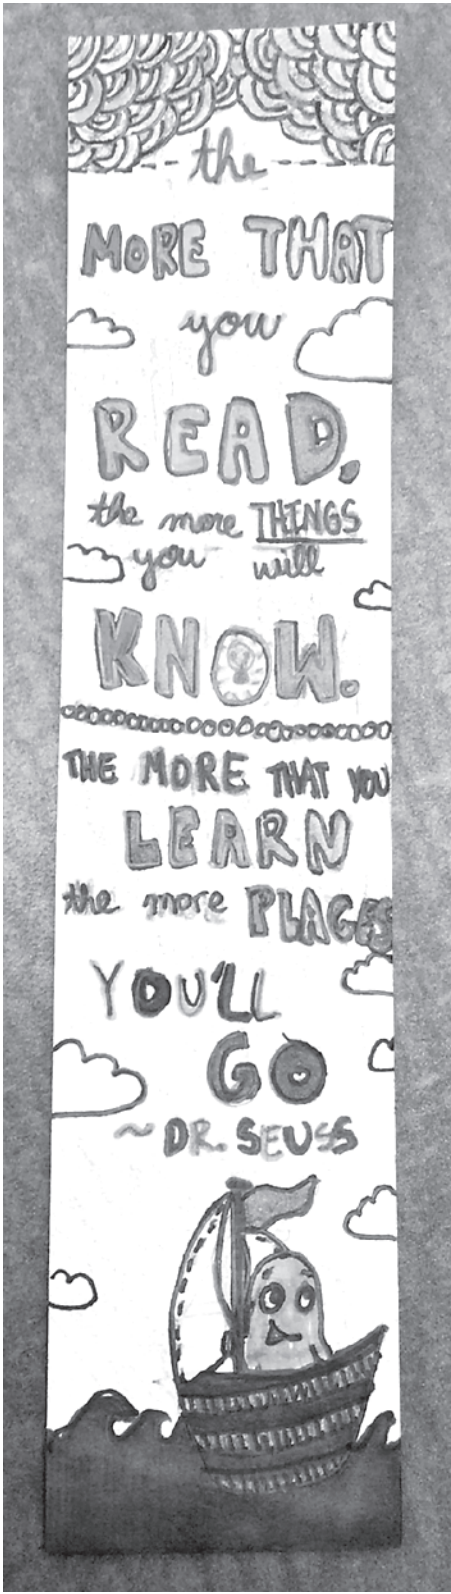 the
MORE THAT
you
READ.
the more THINGS
you will
KNOW.
THE MORE THAT YOU
LEARN
the more PLACES
YOU'LL
GO
~ DR. SEUSS